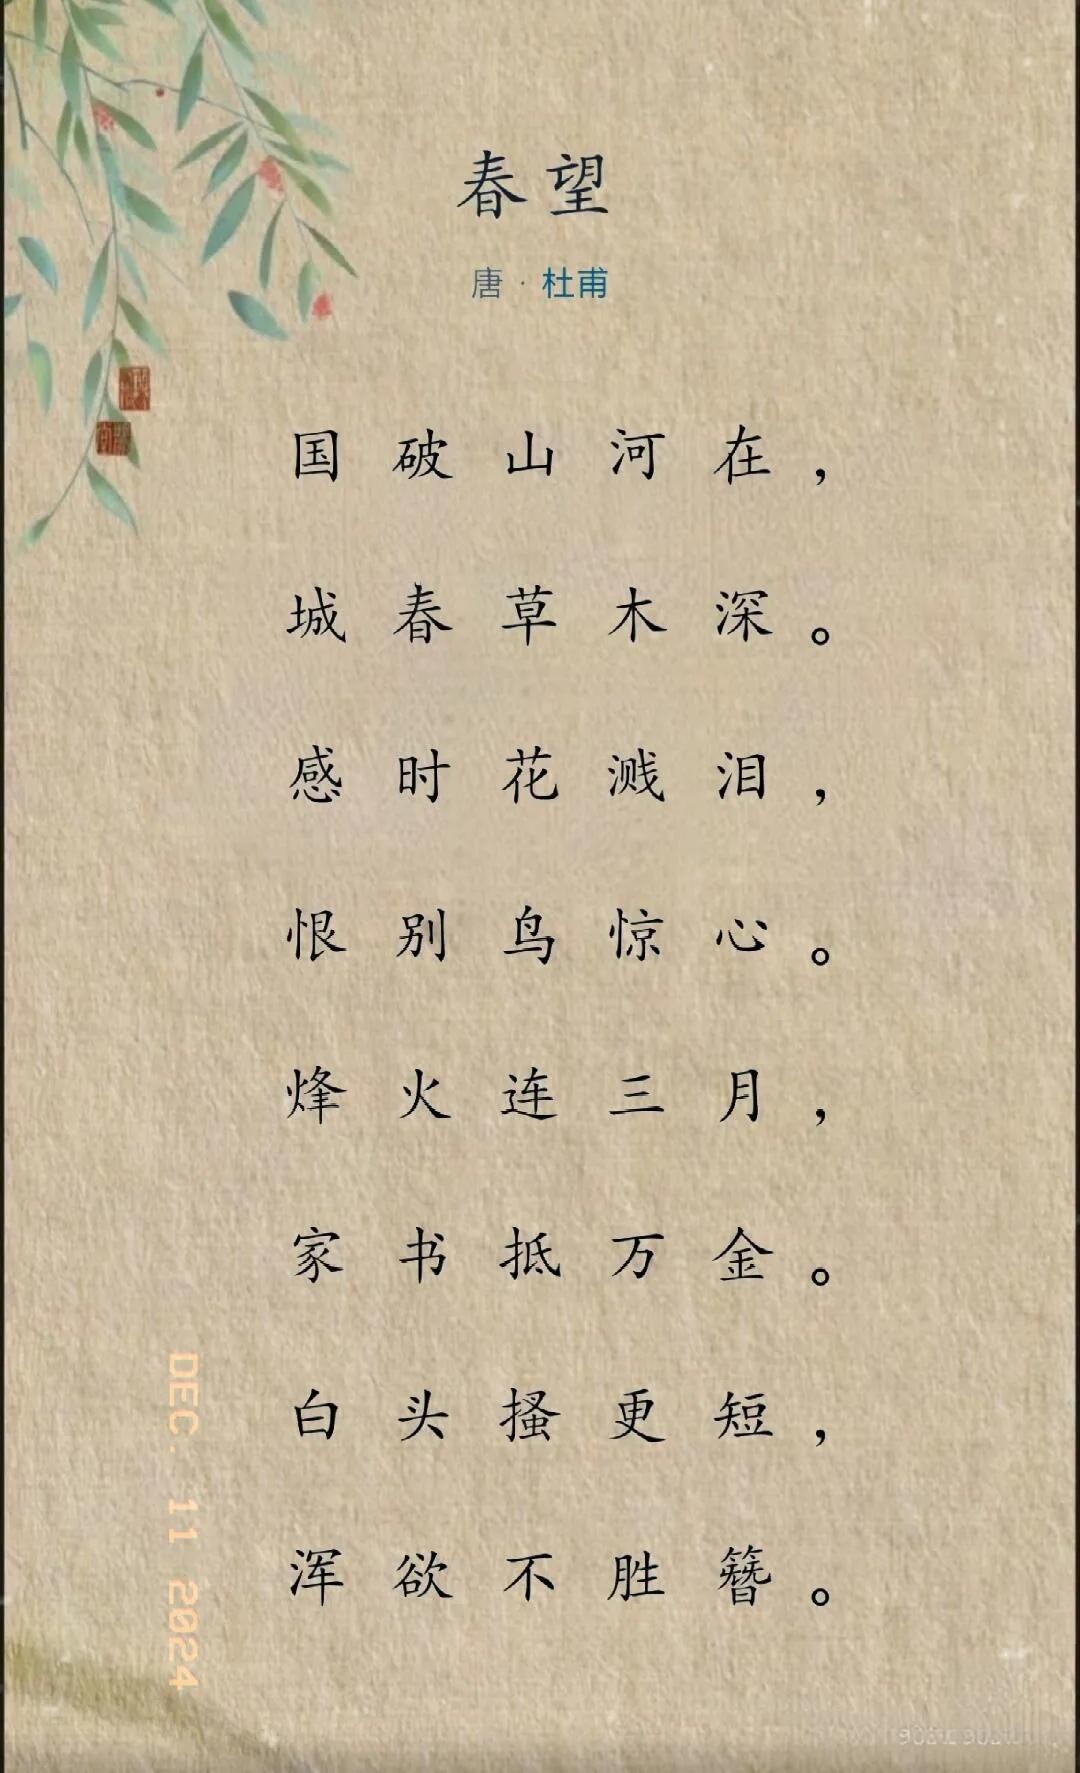 春望
唐·杜甫
国破山河在，
城春草木深。
感时花溅泪，
恨别鸟惊心。
烽火连三月，
家书抵万金。
白头搔更短，
浑欲不胜簪。
DEC. 11 2024